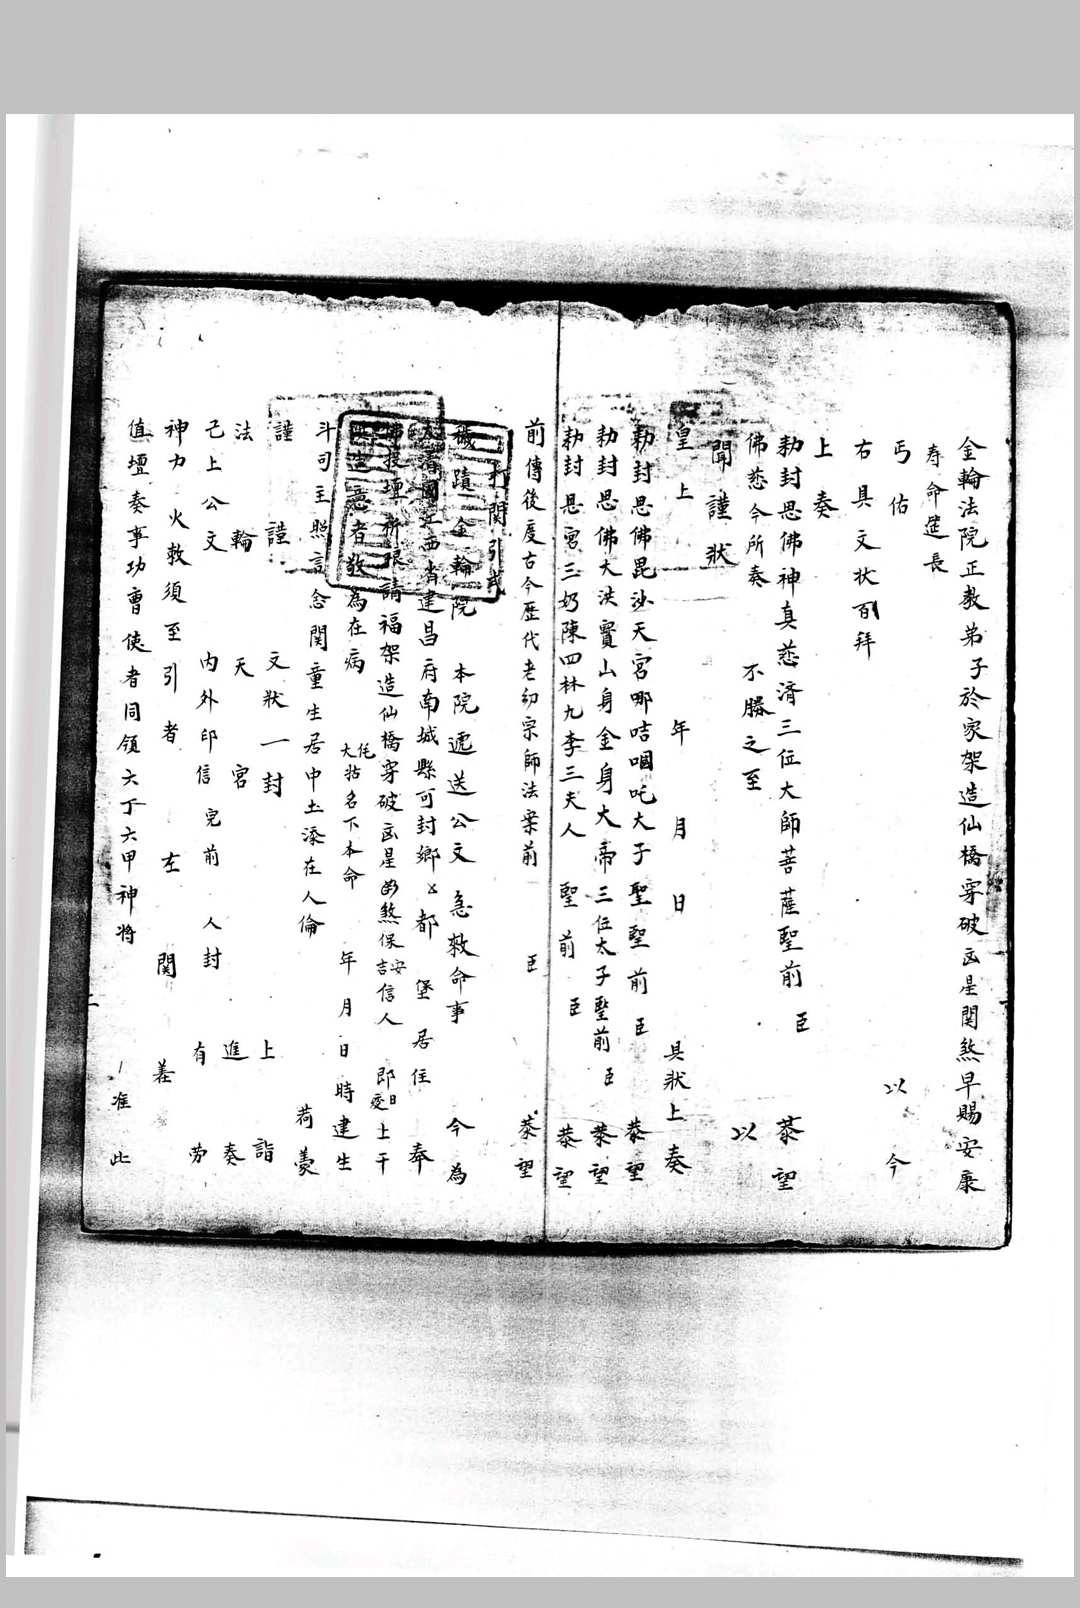 金輪法院正教弟子於家架造仙橋穿破凶星関煞早賜安康
寿命延長
丐佑 以今
右具文状百拜
上奏
勅封恩佛神真慈済三位大師菩薩聖前 臣 恭望
佛慈今所奏 不勝之至 以
聞謹状
皇上 年 月 日 具状上奏
勅封恩佛毘沙天宮哪咭啯吒大子聖聖前 臣 恭望
勅封恩佛大洪寳山身金身大帝三位太子聖前 臣 恭望
勅封恩宮三奶陳四林九李三夫人 聖前 臣 恭望
前傳後度古今歷代老幼宗師法案前 臣 恭望
打関引式
穢蹟金輪院 本院遞送公文急救命事 今為
大清國江西省建昌府南城縣可封鄉〻都 堡居住 奉
佛投壇祈 請福架造仙橋穿破凶星 煞保安吉信人 即日 土干
意者敬為在病 名下本命 年 月 日 時建生
斗司主照言念関童生居中土添在人倫 荷
謹謹 文狀一封 上詣
法輪 天宮 進奏
已上公文 内外印信完前 人封 有劳
神力火敕須至引者 左 関 差
值壇奏事功曹使者同領六丁六甲神将 准此